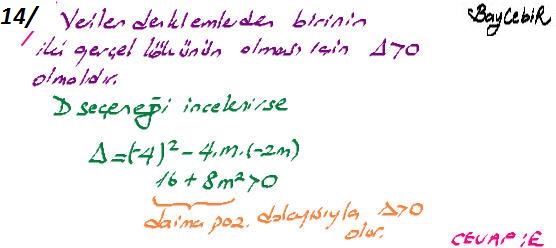 14/ Verilen denklemlerden birinin
BayCebiR
iki gerçel kökünün olması için Δ>0
olmalıdır.
D seçeneği incelenirse
Δ=(-4)²-4.m.(-2m)
16+8m²>0
daima poz. dolayısıyla Δ>0
olur.
CEVAP:E